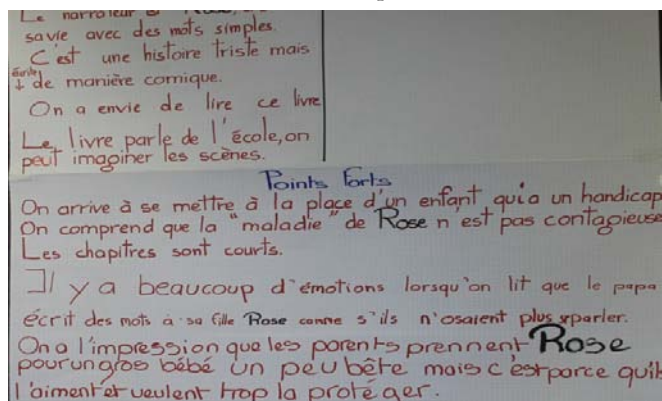 Le narrateur Rose,
sa vie avec des mots simples.
C'est une histoire triste mais
écrite
↓ de manière comique.
On a envie de lire ce livre
Le livre parle de l'école, on
peut imaginer les scènes.
Points Forts
On arrive à se mettre à la place d'un enfant qui a un handicap
On comprend que la "maladie" de Rose n'est pas contagieuse
Les chapitres sont courts.
Il y a beaucoup d'émotions lorsqu'on lit que le papa
écrit des mots à sa fille Rose comme s'ils n'osaient plus parler.
On a l'impression que les parents prennent Rose
pour un gros bébé un peu bête mais c'est parce qu'ils
l'aiment et veulent trop la protéger.